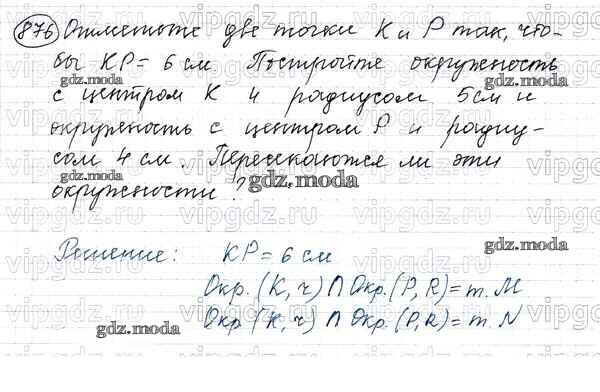 876 Отметьте две точки K и P так, что-
бы KP = 6 см. Постройте окружность
с центром K и радиусом 5 см и
окружность с центром P и радиу-
сом 4 см. Пересекаются ли эти
окружности?
gdz.moda
Решение: KP = 6 см
Окр. (K, r) ∩ Окр. (P, R) = т. M
Окр. (K, r) ∩ Окр. (P, R) = т. N